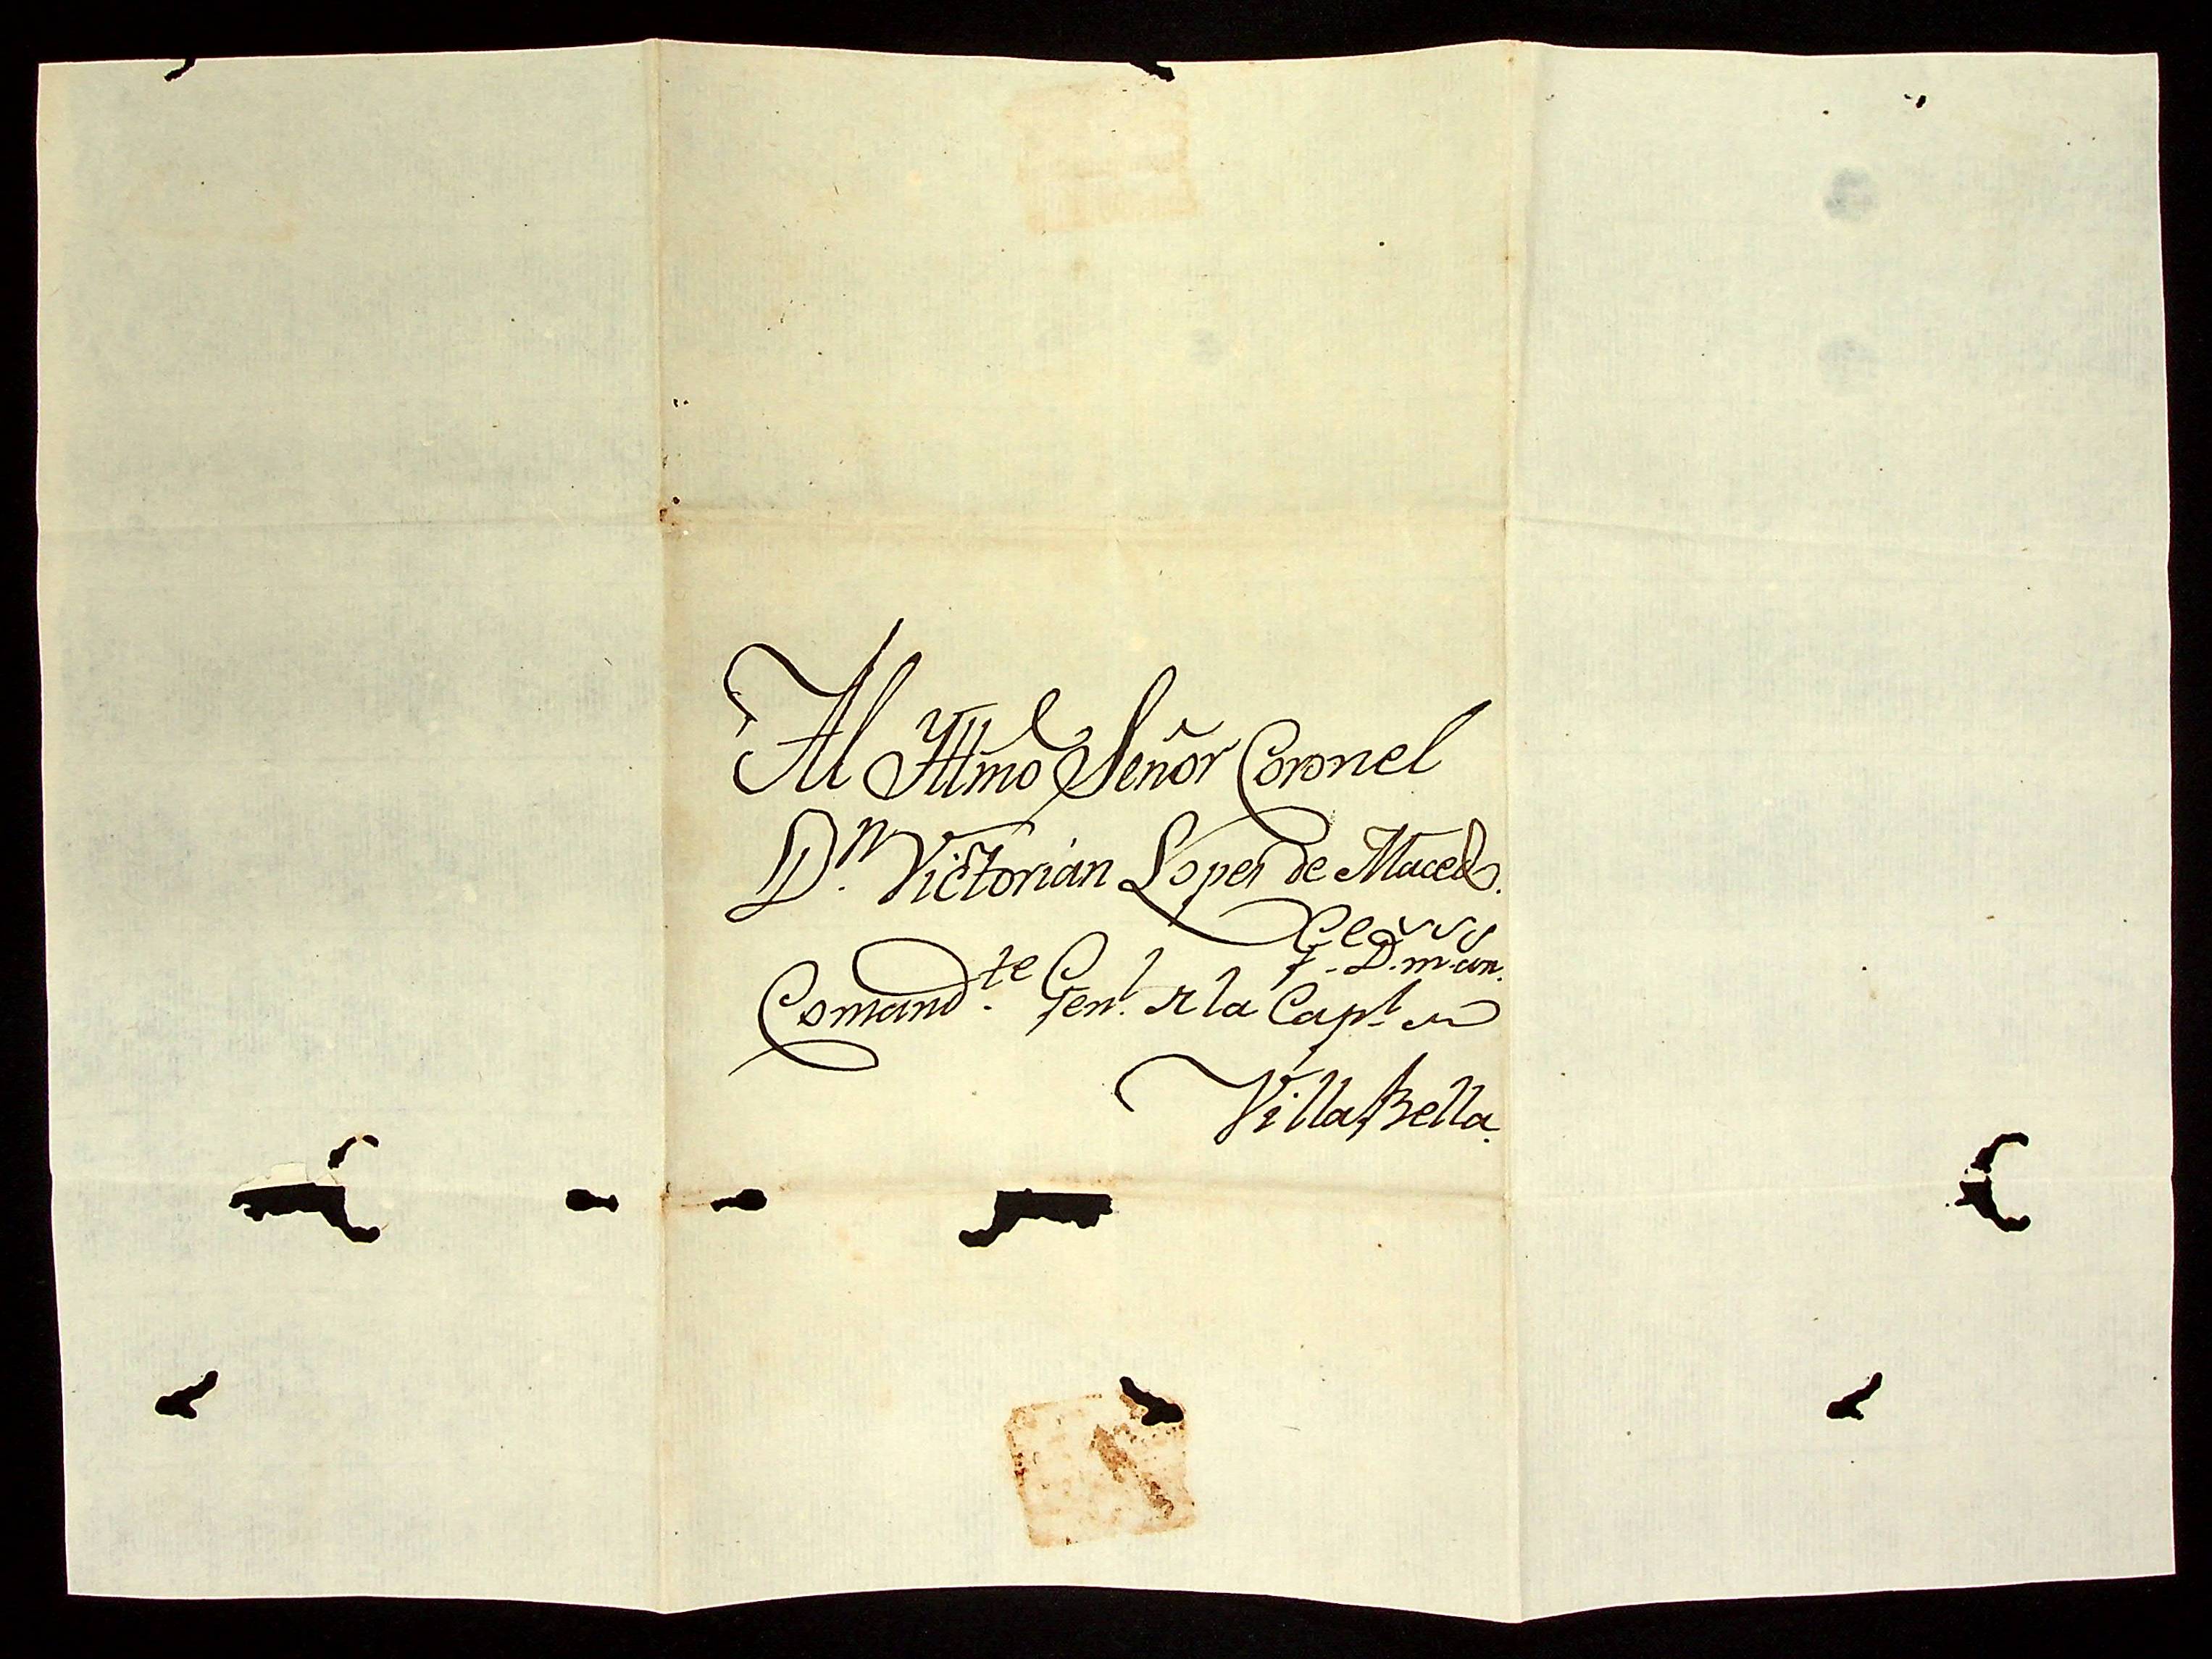 Al Yllmo Señor Coronel
Dn. Victorian Lopes de Macedo.
F. D. m. an.
Comandte. Genl. de la Capl. de
Villa Bella.